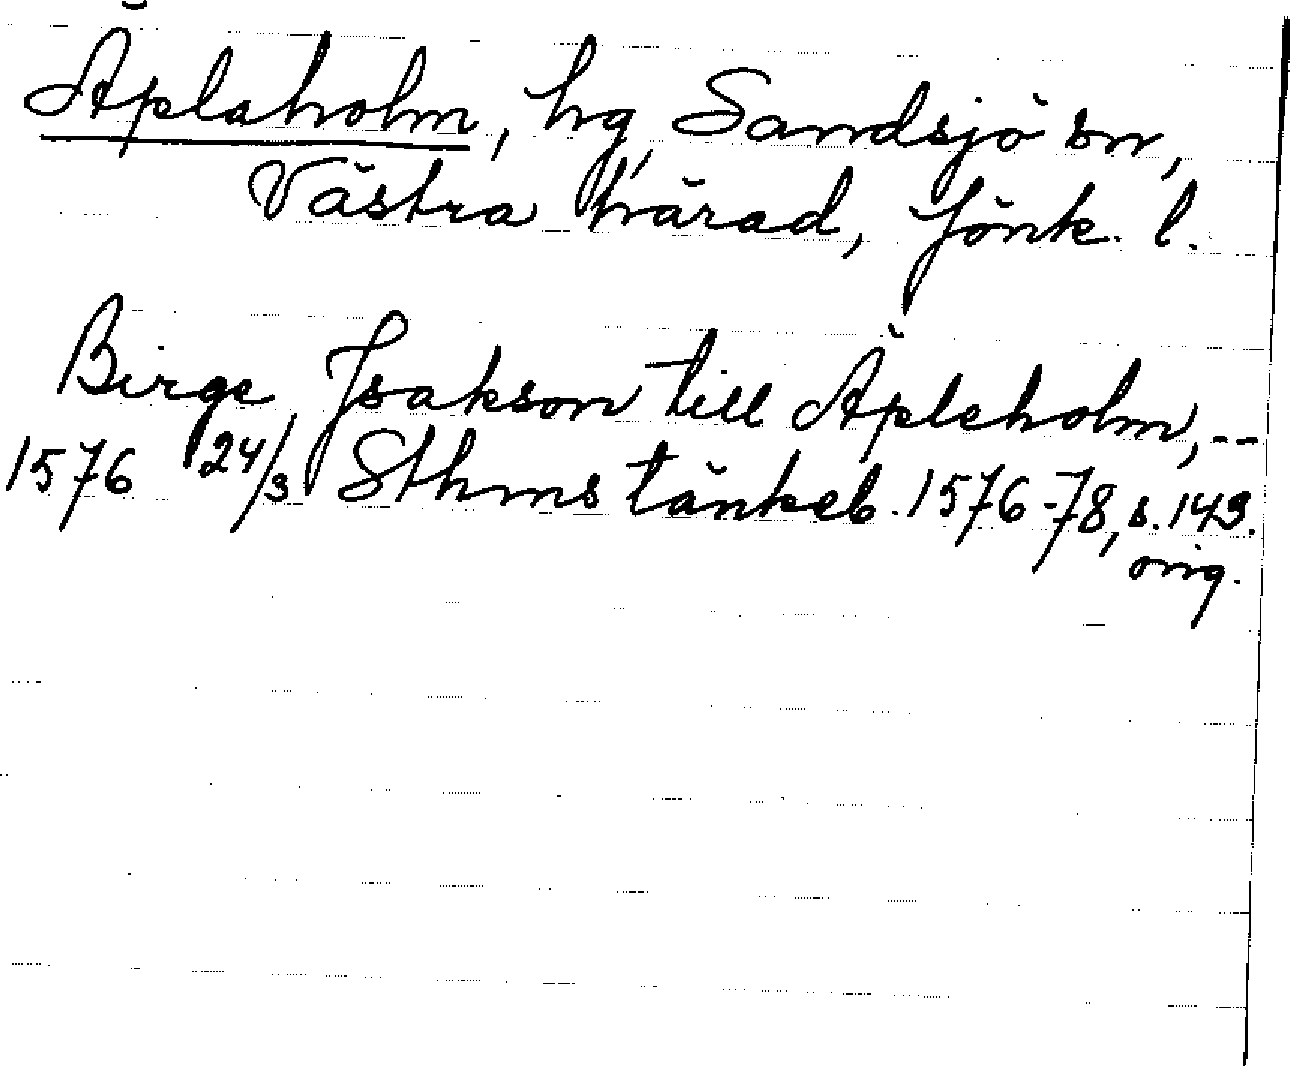 Äplaholm, hg, Sandsjö sn,
Västra härad, Jönk. l.
Birge Jsakson till Äpleholm, --
1576 24/3 Sthms tänkeb. 1576-78, s. 149.
orig.